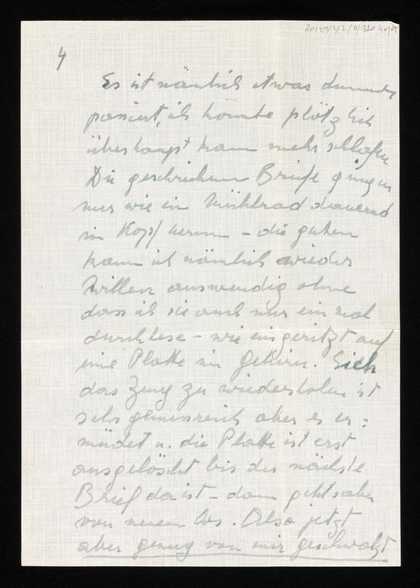 4
Es ist nämlich etwas dummes
passiert, ich konnte plötzlich
überhaupt kaum mehr schlafen
Die geschriebenen Briefe gingen
mir wie ein Mühlrad dauernd
im Kopf herum – die guten
kann ich nämlich wieder
Willen auswendig ohne
dass ich sie auch nur ein mal
durchlese – wie eingeritzt auf
eine Platte im Gehirn. Sich
das Zeug zu wiederholen ist
sehr genussreich aber es er=
müdet u. die Platte ist erst
ausgelöscht bis der nächste
Brief da ist – dann geht's aber
von neuem los. Also jetzt
aber genug von mir geschwatzt